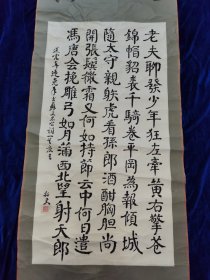 老夫聊發少年狂左牽黃右擎蒼
錦帽貂裘千騎卷平岡為報傾城
隨太守親射虎看孫郎酒酣胸胆尚
開張鬢微霜又何妨持節云中何日遣
馮唐會挽雕弓如月滿西北望射天郎